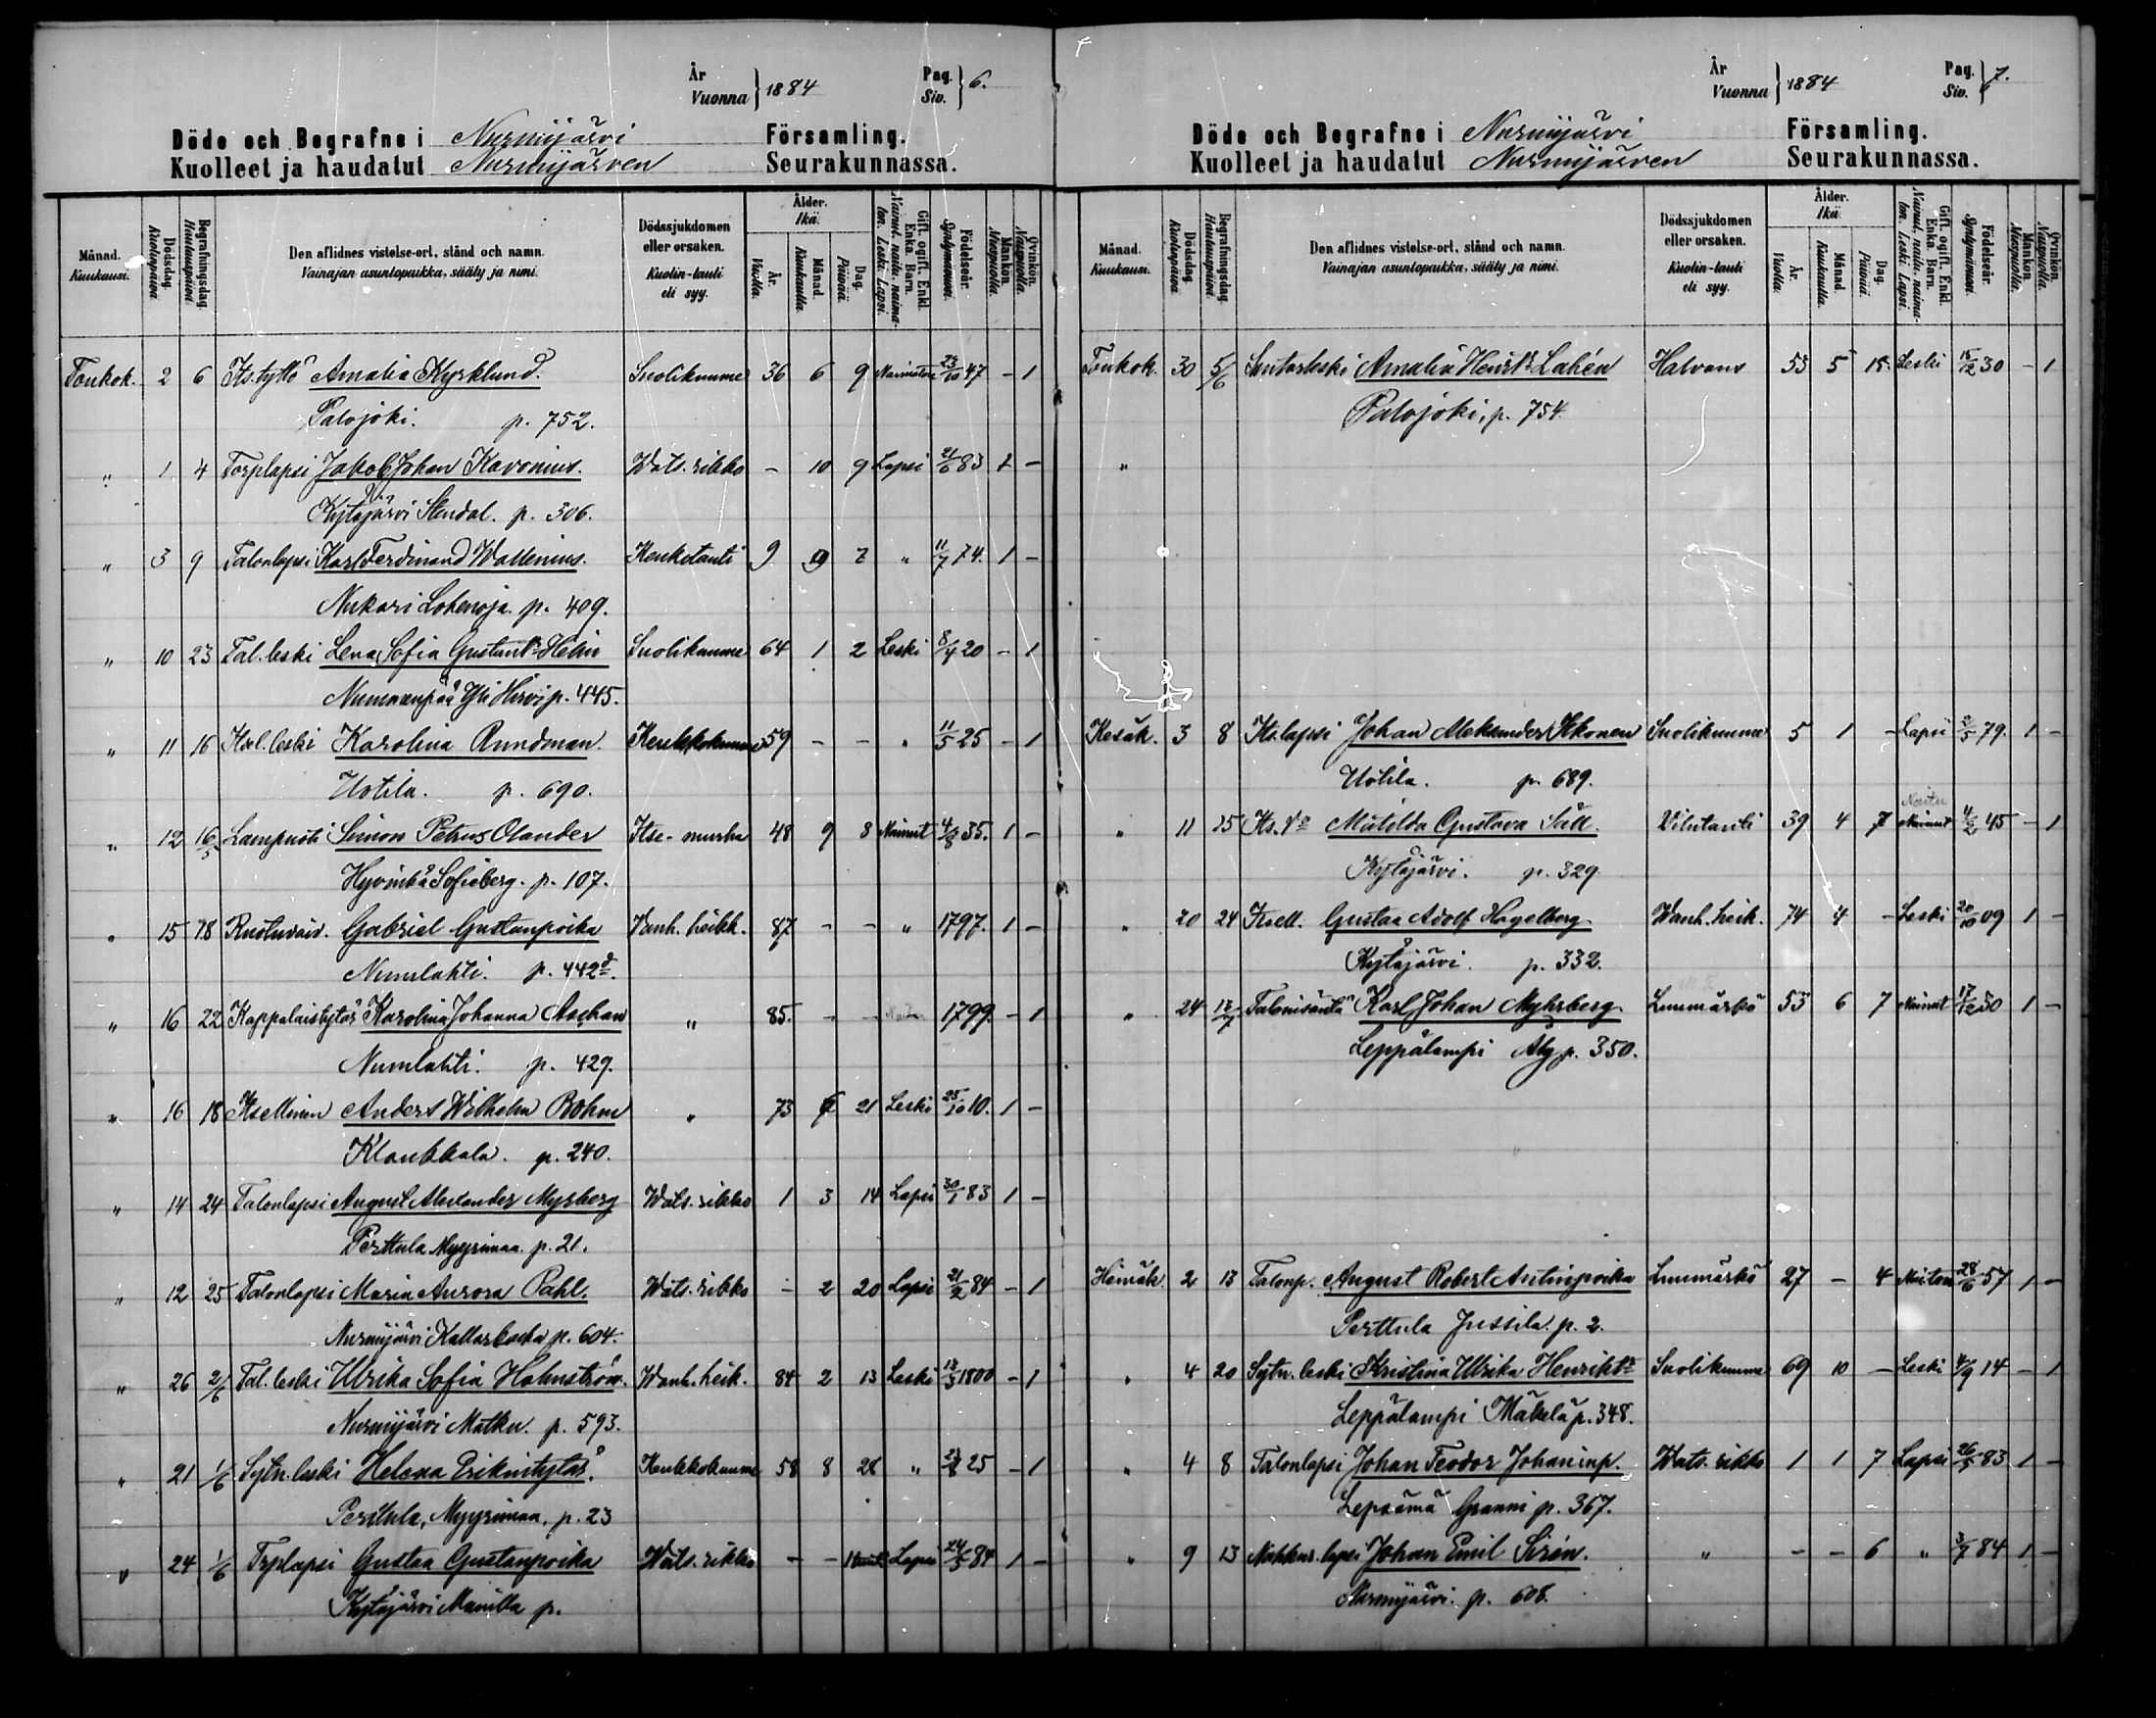 År
Vuonna } 1884
Pag.
Siv. } 6.
Döde och Begrafne i Nurmijärvi Församling.
Kuolleet ja haudatut Nurmijärven Seurakunnassa.
Månad. Kuukausi.
Dödsdag. Kuolinpäivä.
Begrafningsdag. Hautauspäivä.
Den aflidnes vistelse-ort, stånd och namn.
Vainajan asuntopaikka, sääty ja nimi.
Dödssjukdomen eller orsaken.
Kuolin-tauti eli syy.
Ålder. Ikä.
År. Vuotta.
Månad. Kuukautta.
Dag. Päivää.
Gift. ogift. Enkl. Enka. Barn.
Nainut. naitu. naimaton. Leski. Lapsi.
Födelseår. Syntymävuon.
Mankön. Miespuolta.
Qvinkön. Naispuolta.
Toukok. 2 6 Its.tyttö Amalia Kyrklund. Suolikuume 36 6 9 Naimaton 23/10 47 - 1
Palojoki. p. 752.
" 1 4 Torplapsi Jakob Johan Kavonius. Wats. rikko - 10 9 Lapsi 21/6 83 1 -
Kytäjärvi Stendal. p. 306.
" 3 9 Talonlapsi Karl Ferdinand Wallenius. Keuhkotauti 9 9 " 11/7 74. 1 -
Nukari Lohenoja. p. 409.
" 10 23 Tal. leski Lena Sofia Helin Suolikuume 64 1 2 Leski 8/4 20 - 1
Nummenpää Yli Hirvi p. 445.
" 11 16 Itsel. leski Karolina Rundman. Keuhkokuume 59 - - " 11/5 25 - 1
Uotila. p. 690.
" 12 16/5 Lampuoti Simon Petrus Olander Itse-murha 48 9 8 Nainut 4/8 35. 1 -
Hyvinkä Sofieberg. p. 107.
" 15 18 Ruotuvaiv. Gabriel Gustanpoika Vanh. heikk. 87 - - " 1797. 1 -
Numlahti. p. 442
" 16 22 Kappalaistytär Karolina Johanna Aschan " 85. - - 1799. - 1
Numlahti. p. 429.
" 16 18 Itsellinen Anders Wilhelm Bohm " 73 6 21 Leski 25/10 10. 1 -
Klaukkala. p. 240.
" 14 24 Talonlapsi August Alexander Myrberg Wats. rikko 1 3 14 Lapsi 30/1 83 1 -
Perttula Myyrimaa. p. 21.
" 12 25 Talonlapsi Maria Aurora Pahl. Wats. rikko - 2 20 Lapsi 21/2 84 - 1
Nurmijärvi p. 604.
" 26 2/6 Tal. leski Ulrika Sofia Holmström. Wanh. heik. 84 2 13 Leski 13/3 1800 - 1
Nurmijärvi Matku. p. 593.
" 21 1/6 Sytn. leski Helena Erikintytär. Keuhkokuume 58 8 28 " 23/8 25 - 1
Perttula, Myyrimaa, p. 23
" 24 1/6 Trplapsi Gustaa Gustanpoika Wats. rikko - - Lapsi 24/5 84 1 -
Kytäjärvi Manilla p.
År
Vuonna } 1884
Pag.
Siv. } 7.
Döde och Begrafne i Nurmijärvi Församling.
Kuolleet ja haudatut Nurmijärven Seurakunnassa.
Månad. Kuukausi.
Dödsdag. Kuolinpäivä.
Begrafningsdag. Hautauspäivä.
Den aflidnes vistelse-ort, stånd och namn.
Vainajan asuntopaikka, sääty ja nimi.
Dödssjukdomen eller orsaken.
Kuolin-tauti eli syy.
Ålder. Ikä.
År. Vuotta.
Månad. Kuukautta.
Dag. Päivää.
Gift. ogift. Enkl. Enka. Barn.
Nainut. naitu. naimaton. Leski. Lapsi.
Födelseår. Syntymävuon.
Mankön. Miespuolta.
Qvinkön. Naispuolta.
Toukok. 30 5/6 Suutarleski Amalia Lahén Halvaus 53 5 15 Leski 15/12 30 - 1
Palojoki, p. 754.
"
Kesäk. 3 8 Its.lapsi Johan Aleksander Ikonen Suolikuume 5 1 - Lapsi 2/5 79. 1 -
Uotila. p. 689.
" 11 15 Its. Matilda Gustava Säll. Vilutauti 39 4 7 Naitu Nainut 4/2 45 - 1
Kytäjärvi. p. 329.
" 20 24 Itsell. Gustaa Adolf Hagelberg Wanh. heik. 74 4 - Leski 20/10 09 1 -
Kytäjärvi. p. 332.
" 24 13/7 Talonisäntä Karl Johan Myhrberg Lmmärkö 53 6 7 Nainut 17/12 30 1 -
Leppälampi p. 350.
Heinäk. 2 13 Talonp. August Robert Antinpoika Lmmärkö 27 - 4 28/6 57 1 -
Perttula Jussila. p. 2.
" 4 20 Sytn. leski Kristina Ulrika Suolikuume 69 10 - Leski 4/9 14 - 1
Leppälampi Mäkelä p. 348.
" 4 8 Talonlapsi Johan Teodor Johaninp. Wats. rikko 1 1 7 Lapsi 26/5 83 1 -
Lepsämä Granni p. 367.
" 9 13 Nahkur. lapsi Johan Emil Sirén. " - - 6 " 3/7 84 1 -
Nurmijärvi. p. 608.